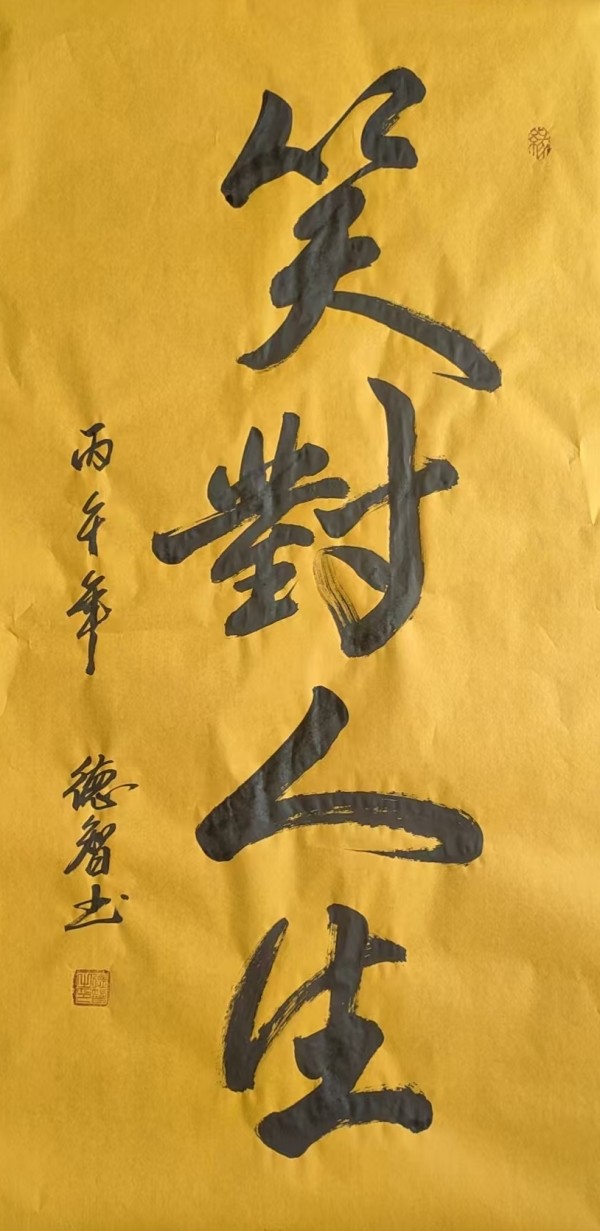 笑對人生
丙午年 德智书